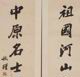 祖國河山
中原名士